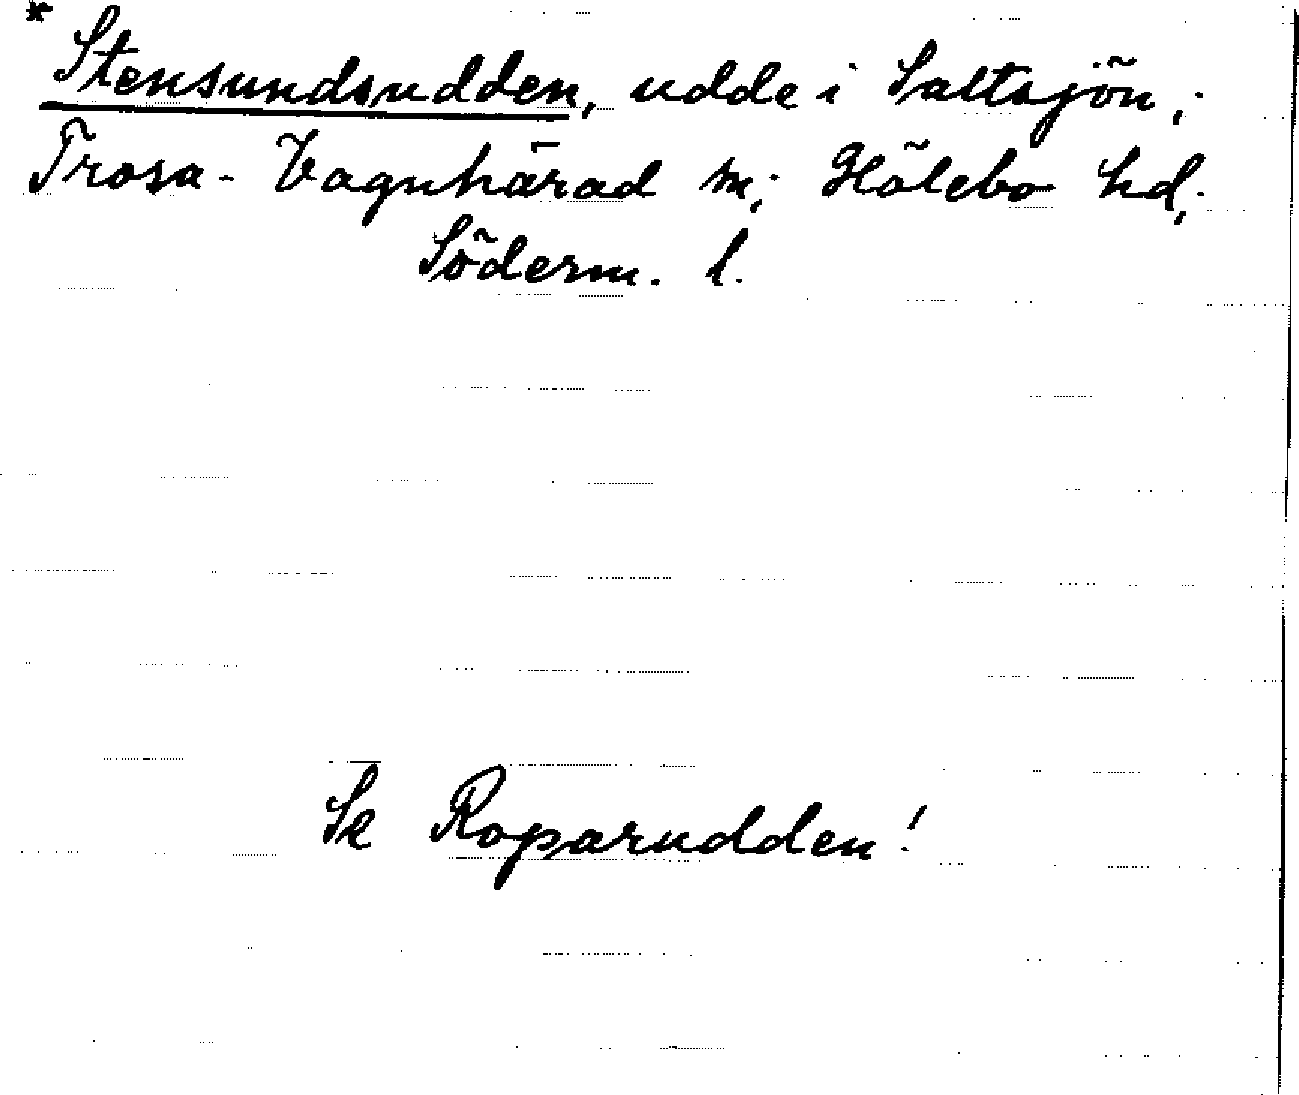 * Stensundsudden, udde i Saltsjön,;
Trosa-Vagnhärad sn,; Hölebo hd,;
Söderm. l.
Se Roparudden!